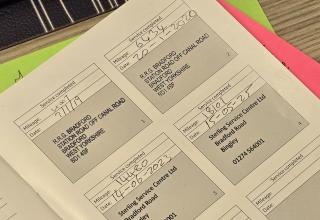 Service completed
Mileage:
Date:
R.R.G. BRADFORD
STATION ROAD OFF CANAL ROAD
BRADFORD
WEST YORKSHIRE
BD1 4SF
Service completed
Mileage: 6434
Date:
R.R.G. BRADFORD
STATION ROAD OFF CANAL ROAD
BRADFORD
WEST YORKSHIRE
2
Service completed
Mileage: 14480
Date: 14-06-2023
Sterling Service Centre Ltd
Bradford Road
Bingley
Service completed
Mileage:
Date:
Sterling Service Centre Ltd
Bradford Road
Bingley
01274 564001
Service completed
Mileage:
Date: